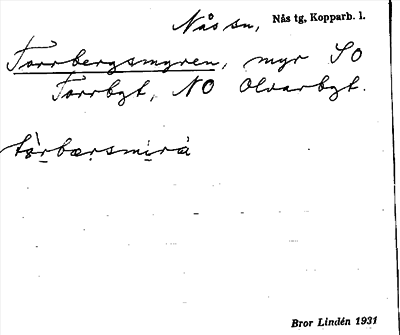 Nås sn, Nås tg, Kopparb. l.
Torrbergsmyren, myr SO
Torrbgt, NO Olvarbgt.
tòrbærsmirà
Bror Lindén 1931